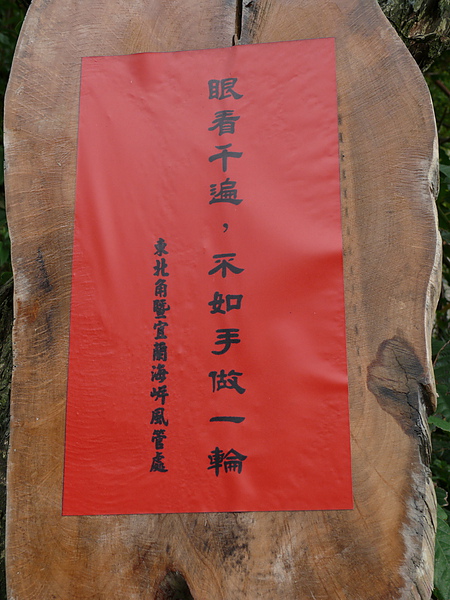 眼看千遍，不如手做一輪
東北角暨宜蘭海岸風管處